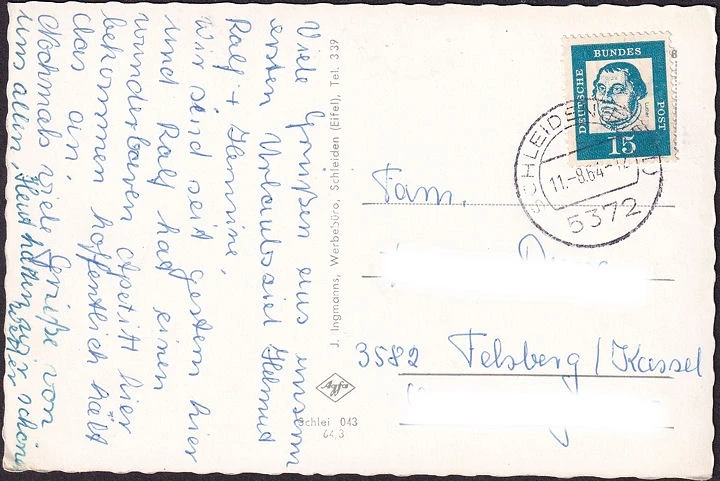 Viele Grüßen aus unserm
ersten Urlaubsziel Helmut
Ralf + Hannine,
Wir sind seit gestern hier
und Ralf hat einen
wunderbaren Apetitt hier
bekommen hoffentlich hält
das an.
Nochmals viele Grüße von
uns allen, Heut hatten wir schönes
Wetter
J. Ingmanns, Werbebüro, Schleiden (Eifel), Tel. 339
Agfa
Schlei 043
64.3
DEUTSCHE BUNDES POST
15
SCHLEIDEN
11.-8.64-12
5372
Fam.
3582 Felsberg/Kassel